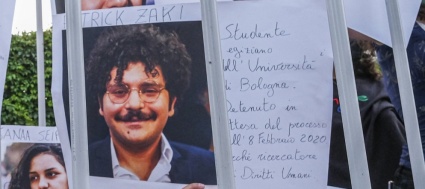 TRICK ZAKI
Studente
egiziano
ell'Università
di Bologna.
Detenuto in
ttesa del processo
all'8 Febbraio 2020
rché ricercatore
Diritti Umani